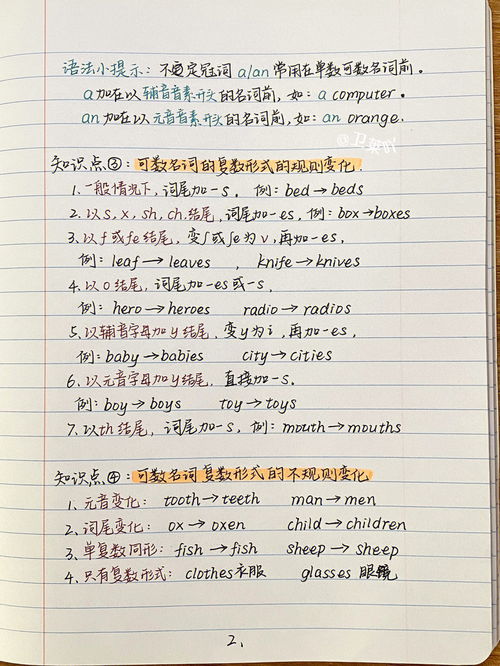 语法小提示：不定冠词 a/an 常用在单数可数名词前。
a加在以辅音音素开头的名词前，如：a computer.
an 加在以元音音素开头的名词前，如：an orange.
知识点③：可数名词的复数形式的规则变化.
1.一般情况下，词尾加-s. 例：bed→beds
2.以s,x,sh,ch.结尾，词尾加-es，例：box→boxes
3.以f或fe结尾，变f或fe为v，再加-es，
例：leaf→leaves ，knife→knives
4.以o结尾，词尾加-es或-s，
例：hero→heroes radio→radios
5.以辅音字母加y结尾，变y为i，再加-es，
例：baby→babies city→cities
6.以元音字母加y结尾，直接加-s.
例：boy→boys toy→toys
7.以th结尾，词尾加-s，例：mouth→mouths
知识点④：可数名词复数形式的不规则变化
1.元音变化：tooth→teeth man→men
2.词尾变化：ox→oxen child→children
3.单复数同形：fish→fish sheep→sheep
4.只有复数形式：clothes衣服 glasses 眼镜
2.